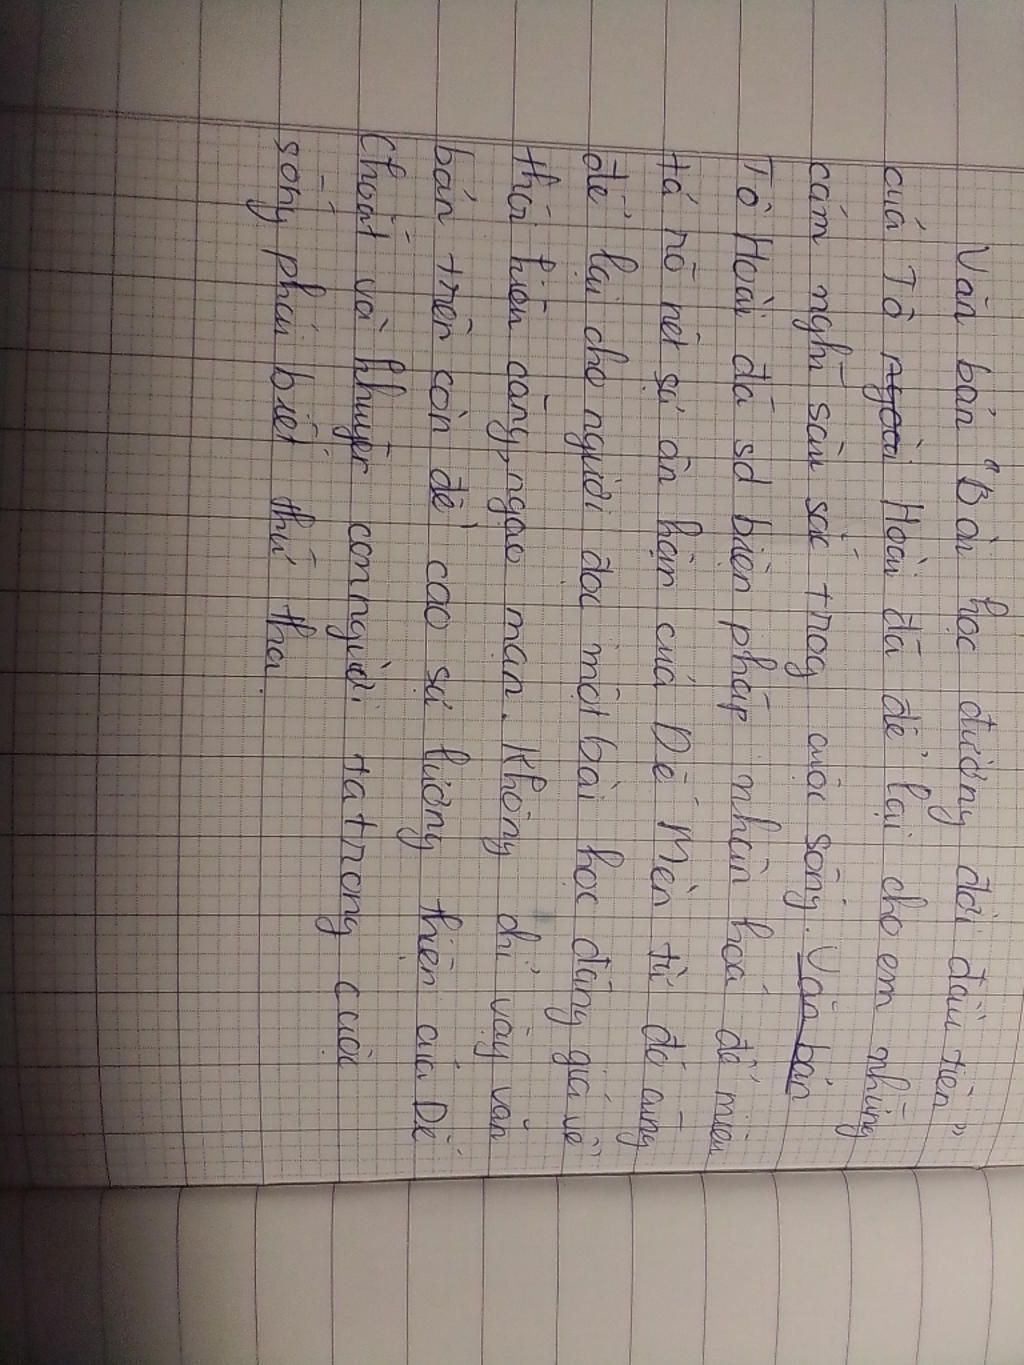 Văn bản "Bài học đường đời đầu tiên"
của Tô Hoài đã để lại cho em những
cảm nghĩ sâu sắc trog cuộc sống. Văn bản
Tô Hoài đã sd biện pháp nhân hoá để miêu
tả rõ nét sự ân hận của Dế Mèn từ đó cũng
để lại cho người đọc một bài học đáng giá về
thói hiên căng, ngạo mạn. Không chỉ vậy văn
bản trên còn đề cao sự lương thiện của Dế
Choắt và khuyên con người ta trong cuộc
sống phải biết thứ tha.